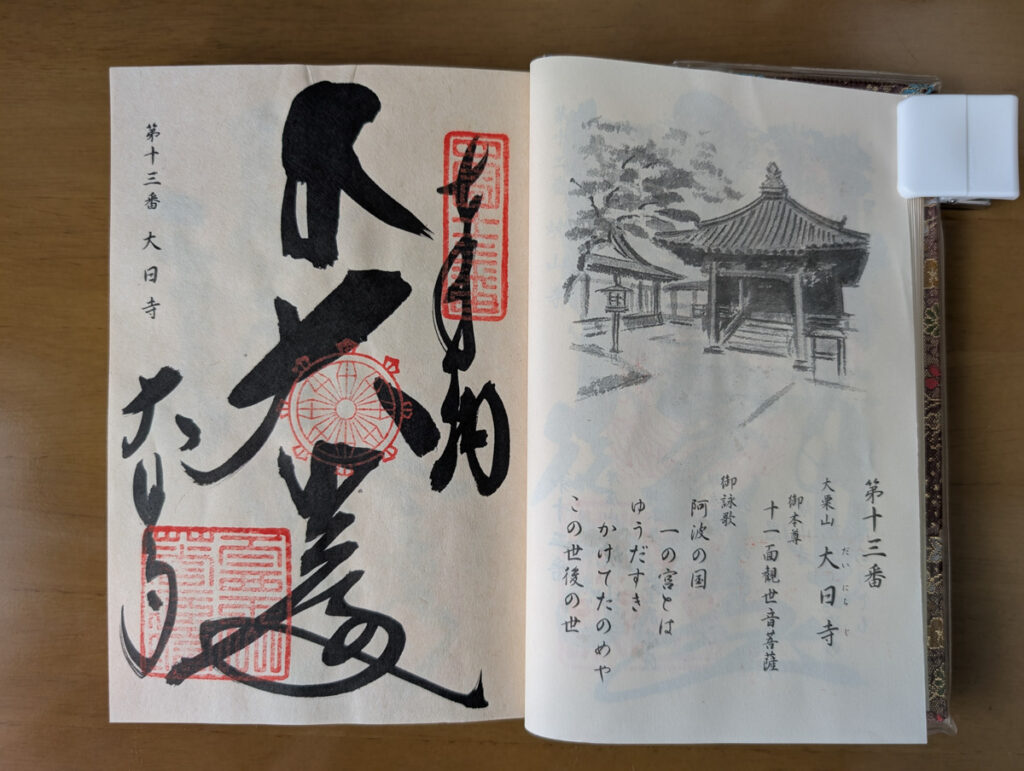 第十三番
大栗山 大日寺
だいにちじ
御本尊
十一面観世音菩薩
御詠歌
阿波の国
一の宮とは
ゆうだすき
かけてたのめや
この世後の世
大日寺
第十三番 大日寺